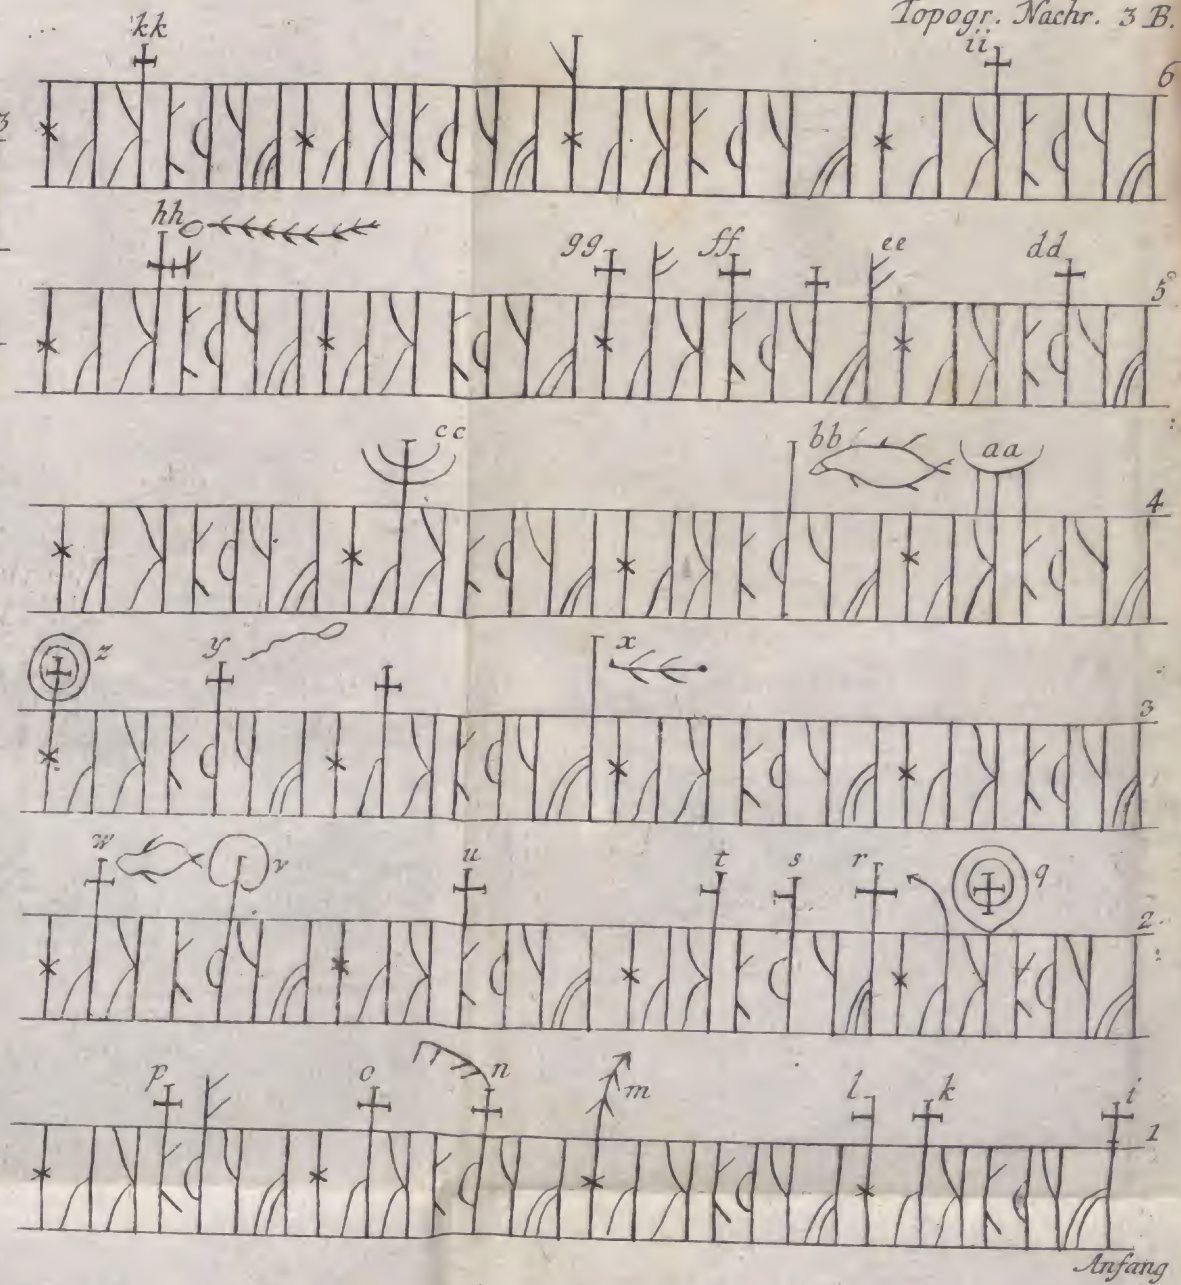 Topogr. Nachr. 3 B.
kk ii 6
3
hh gg ff ee dd 5
cc bb aa 4
z y x 3
w v u t s r q 2
p o n m l k i 1
Anfang